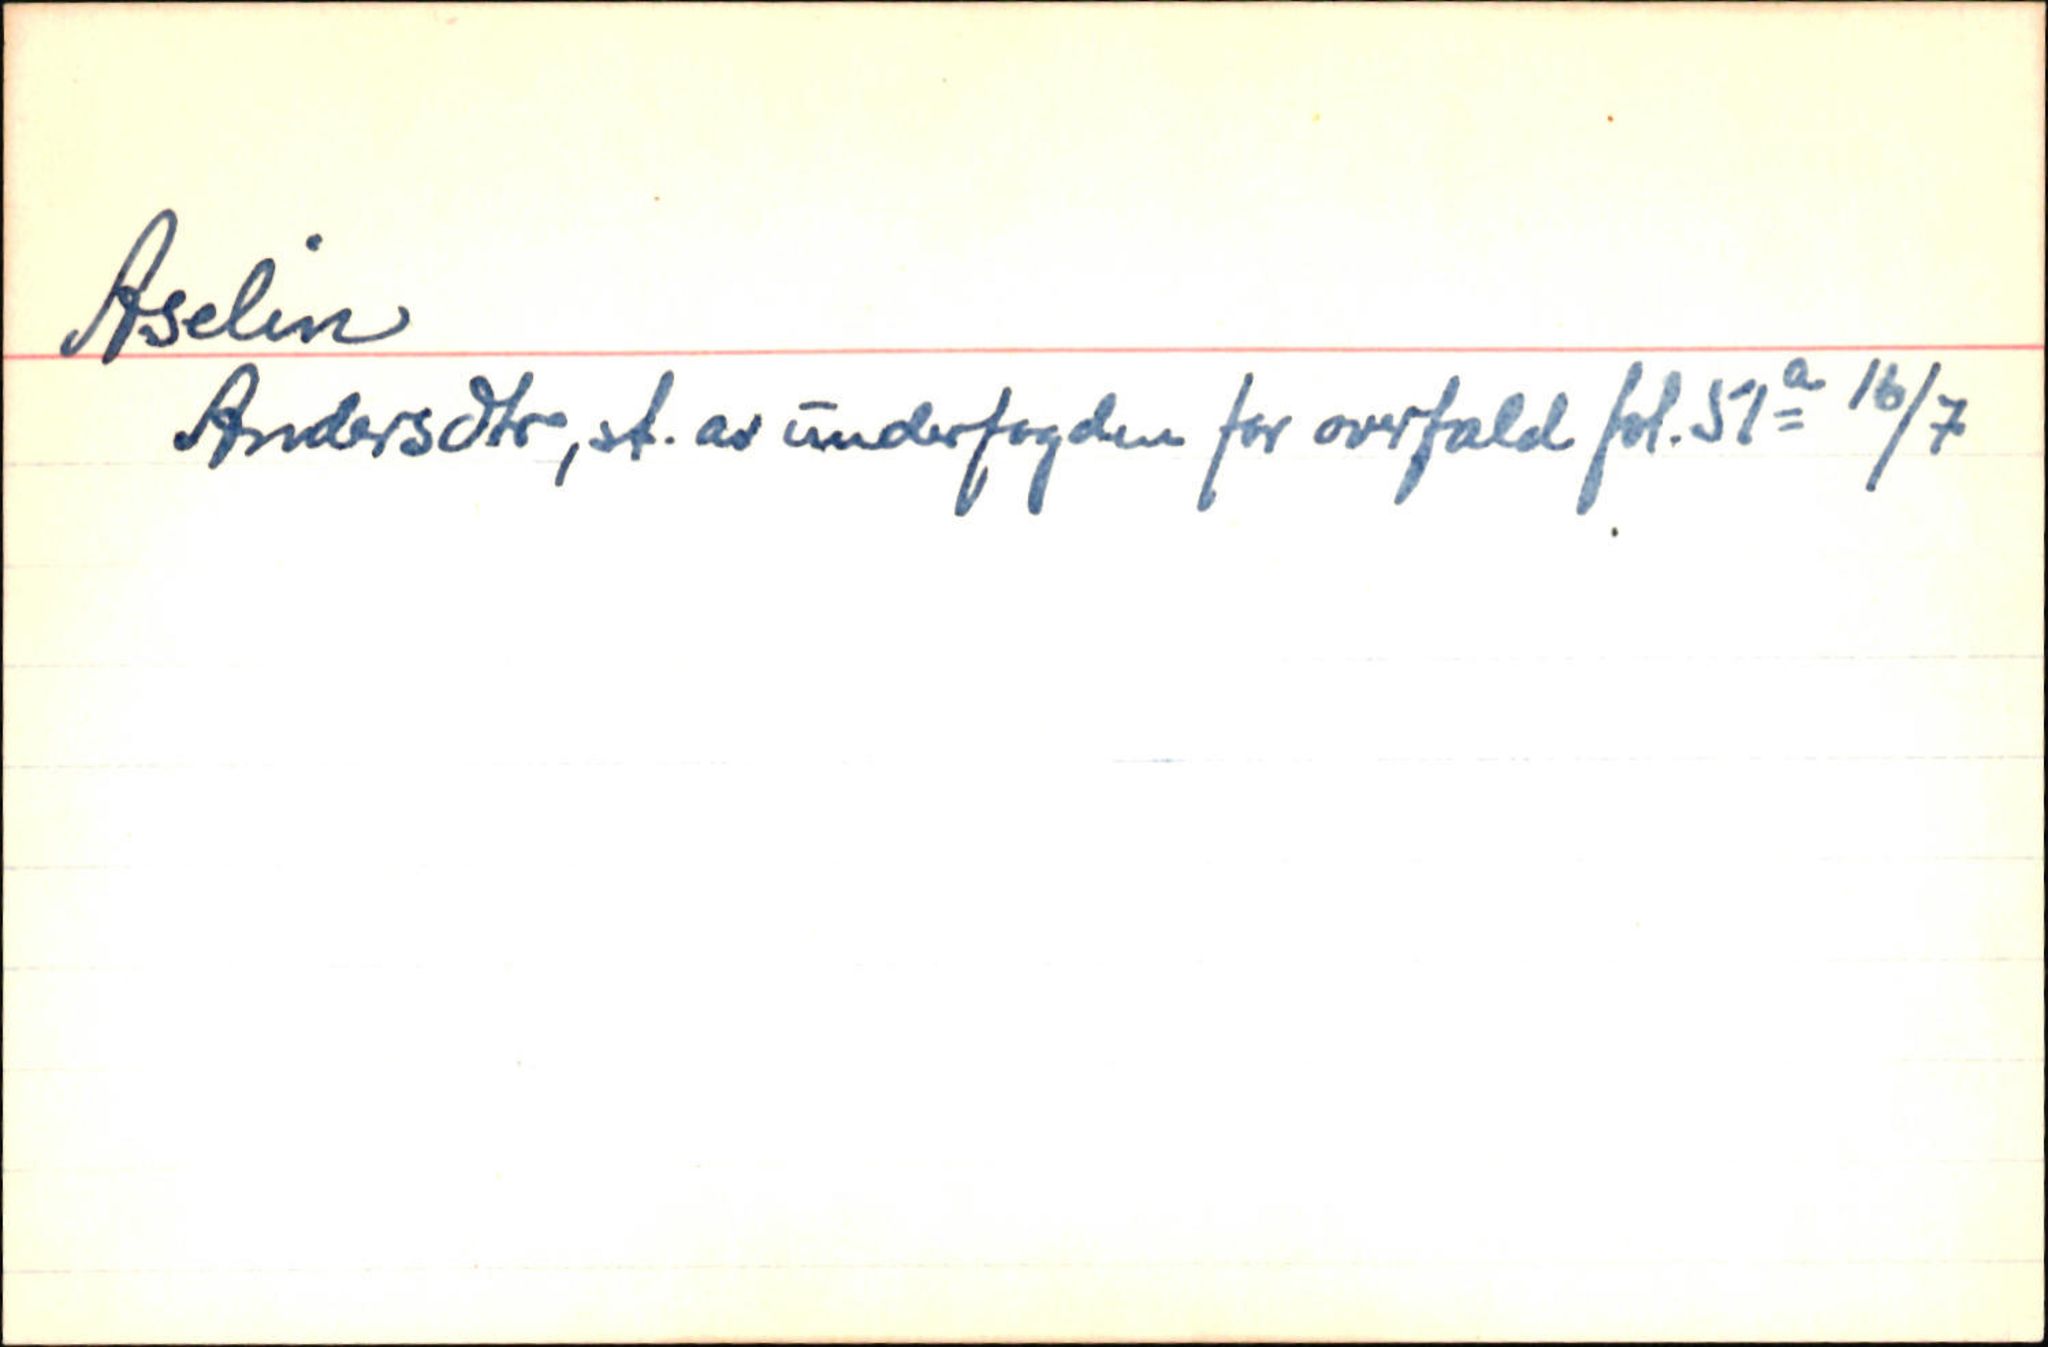 Aselin
Andersdtr, st. av underfogden for overfald fol. 51a 16/7